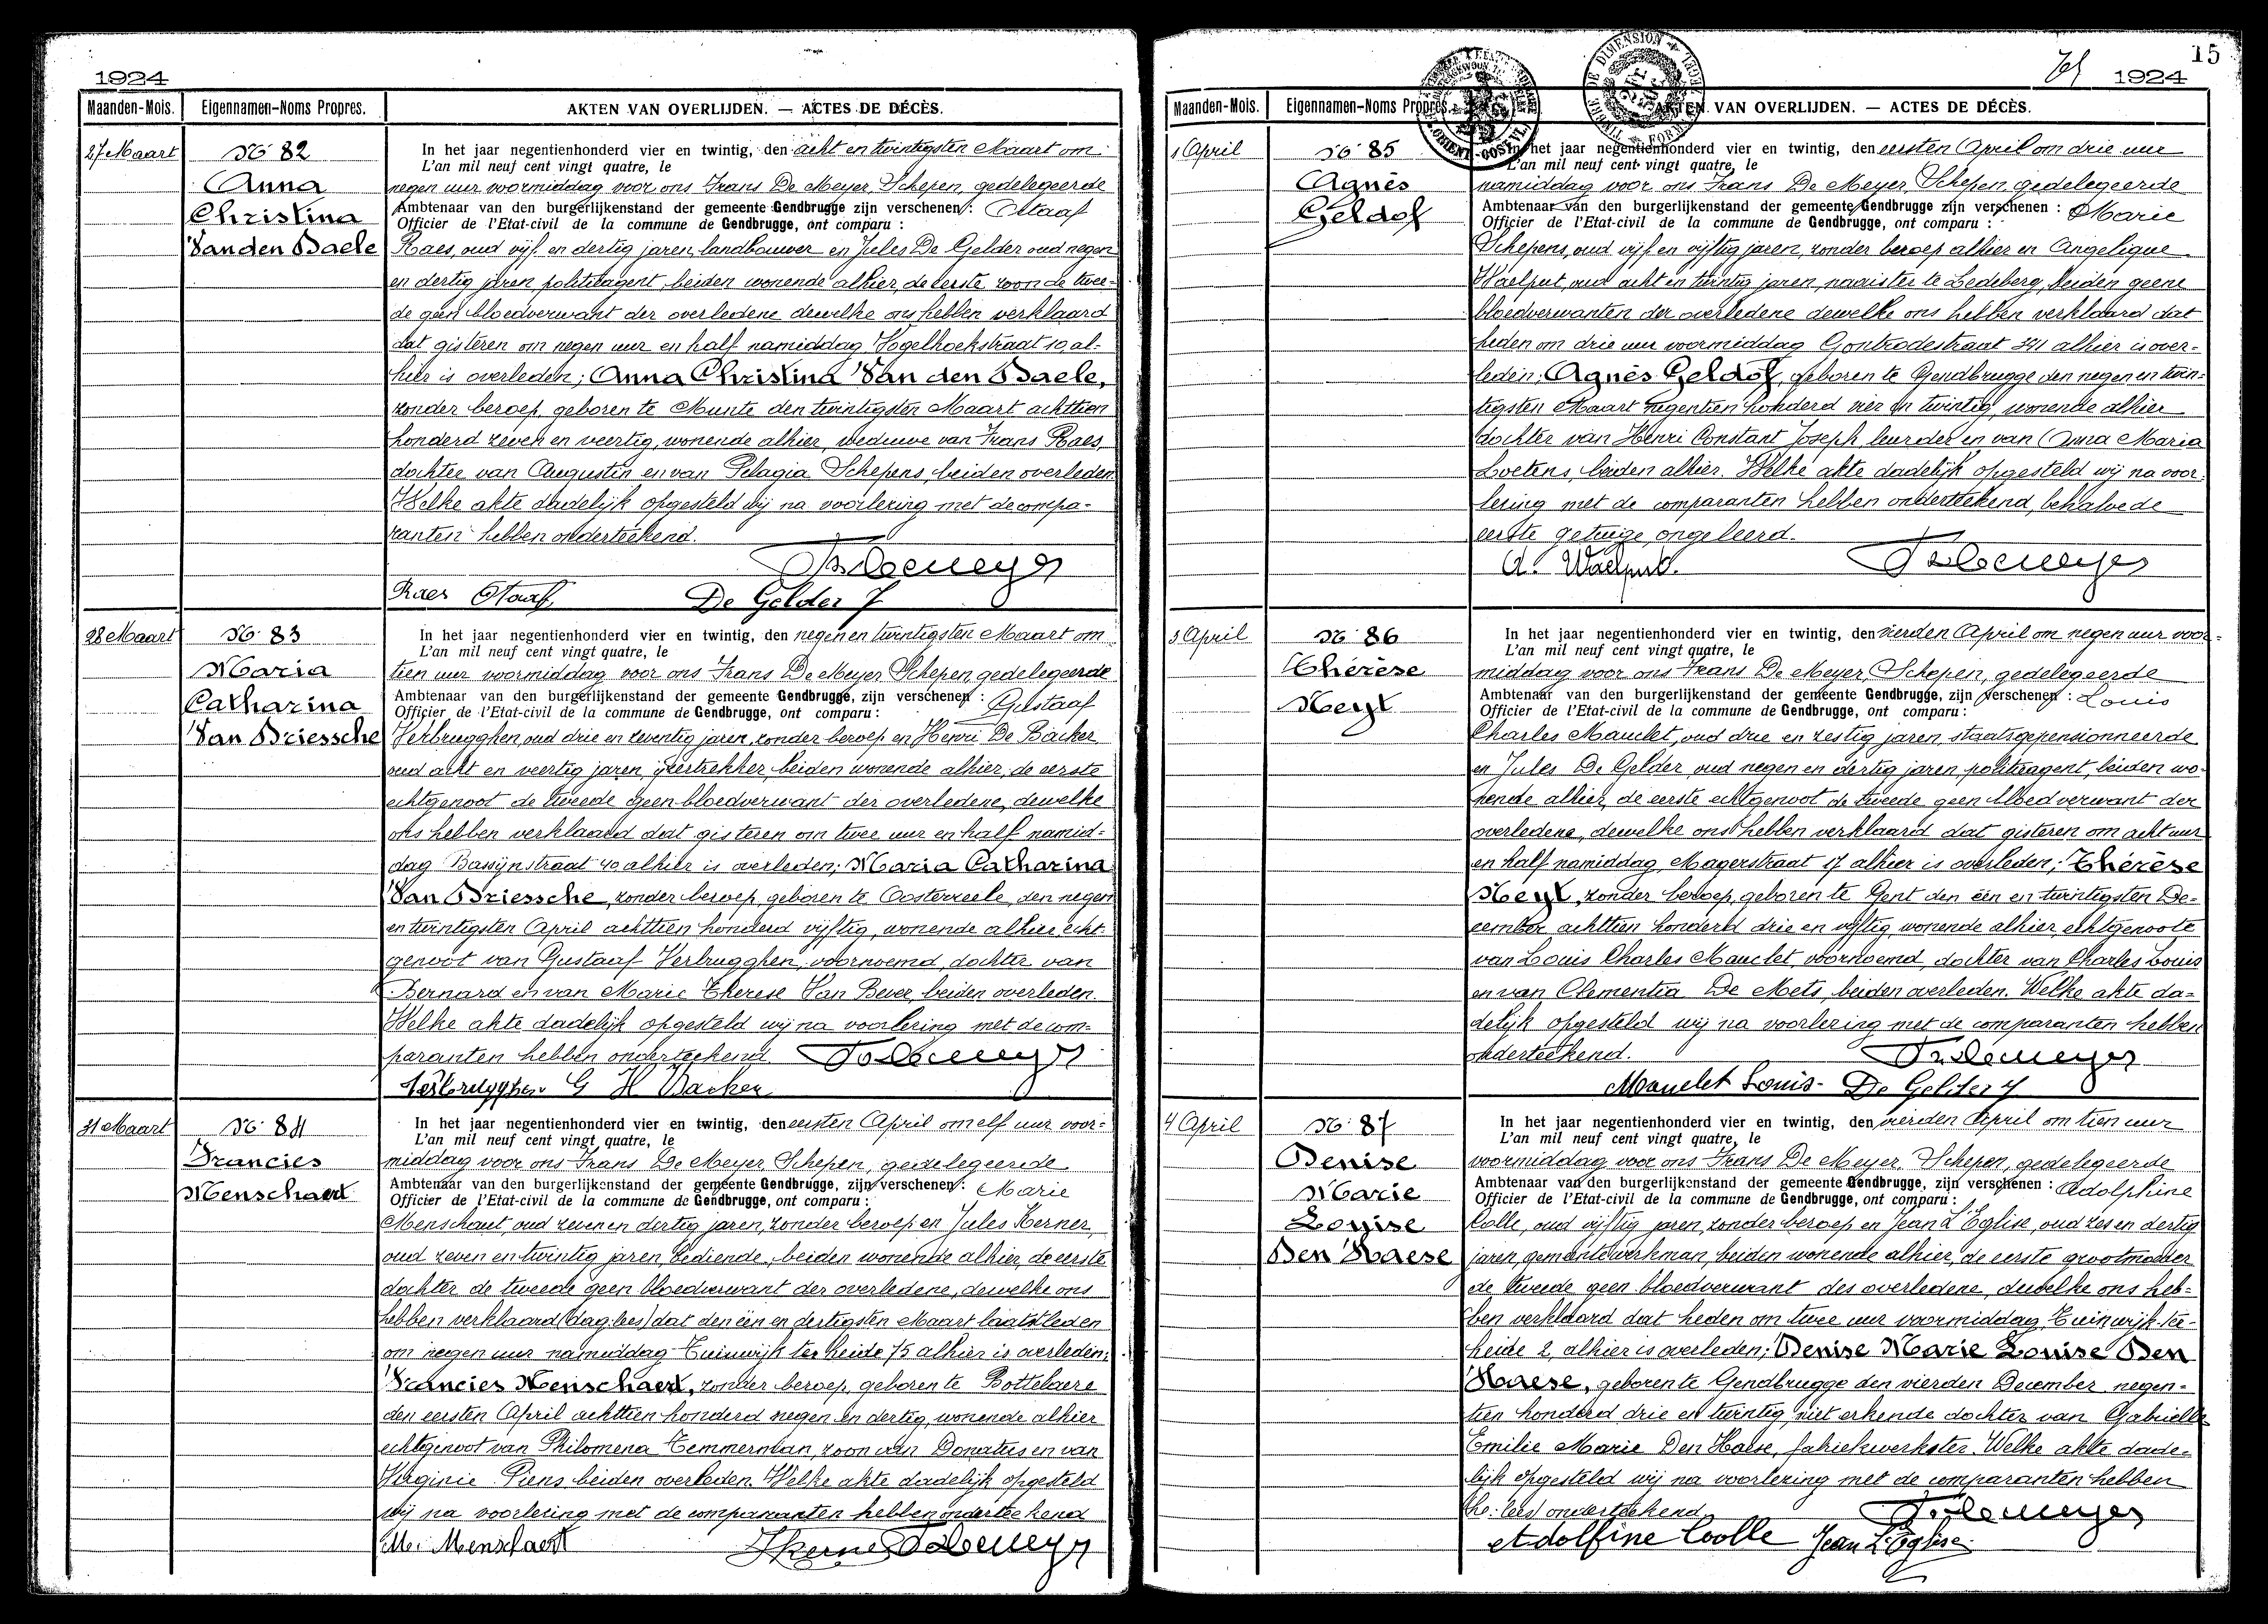 1924
Maanden-Mois.
Eigennamen-Noms Propres.
AKTEN VAN OVERLIJDEN. — ACTES DE DÉCÈS.
27 Maart
No 82
Anna
Christina
Van den Daele
In het jaar negentienhonderd vier en twintig, den acht en twintigsten Maart om
L'an mil neuf cent vingt quatre, le
negen uur voormiddag voor ons Frans De Meyer, Schepen, gedelegeerde
Ambtenaar van den burgerlijkenstand der gemeente Gendbrugge zijn verschenen : Staaf
Officier de l'Etat-civil de la commune de Gendbrugge, ont comparu :
Raes, oud vijf en dertig jaren, landbouwer en Jules De Gelder oud negen
en dertig jaren politieagent, beiden wonende alhier, de eerste zoon de twee-
de geen bloedverwant der overledene dewelke ons hebben verklaard
dat gisteren om negen uur en half namiddag Kogelhoekstraat 10 al-
hier is overleden; Anna Christina Van den Daele,
zonder beroep, geboren te Munte den twintigsten Maart achttien
honderd zeven en veertig, wonende alhier, weduwe van Frans Raes,
dochter van Augustin en van Pelagia Schepens, beiden overleden.
Welke akte dadelijk opgesteld wij na voorlezing met de compa-
ranten hebben onderteekend.
Frdemeyer
Raes Staaf De Gelder J
28 Maart
No 83
Maria
Catharina
Van Driessche
In het jaar negentienhonderd vier en twintig, den negen en twintigsten Maart om
L'an mil neuf cent vingt quatre, le
tien uur voormiddag voor ons Frans De Meyer Schepen, gedelegeerde
Ambtenaar van den burgerlijkenstand der gemeente Gendbrugge, zijn verschenen : Gustaaf
Officier de l'Etat-civil de la commune de Gendbrugge, ont comparu :
Verbrugghen, oud drie en zeventig jaren, zonder beroep en Henri De Backer
oud acht en veertig jaren, ijzertrekker, beiden wonende alhier, de eerste
echtgenoot de tweede geen bloedverwant der overledene, dewelke
ons hebben verklaard dat gisteren om twee uur en half namid-
dag Bassijnstraat 40 alhier is overleden; Maria Catharina
Van Driessche, zonder beroep, geboren te Oosterzeele, den negen
en twintigsten April achttien honderd vijftig, wonende alhier, echt-
genoot van Gustaaf Verbrugghen, voornoemd, dochter van
Bernard en van Marie Therese Van Bever, beiden overleden.
Welke akte dadelijk opgesteld wij na voorlezing met de com-
paranten hebben onderteekend. Frdemeyer
Verbrugghen G H Backer
31 Maart
No 84
Francies
Menschaert
In het jaar negentienhonderd vier en twintig, den eersten April om elf uur voor-
L'an mil neuf cent vingt quatre, le
middag voor ons Frans De Meyer Schepen, gedelegeerde
Ambtenaar van den burgerlijkenstand der gemeente Gendbrugge, zijn verschenen : Marie
Officier de l'Etat-civil de la commune de Gendbrugge, ont comparu :
Menschaut, oud zeven en dertig jaren, zonder beroep en Jules Kerner,
oud zeven en twintig jaren, bediende, beiden wonende alhier, de eerste
dochter de tweede geen bloedverwant der overledene, dewelke ons
hebben verklaard (dag: lees) dat den één en dertigsten Maart laatstleden
om negen uur namiddag Tuinwijk ter heide 75 alhier is overleden:
Francies Menschaert, zonder beroep, geboren te Bottelaere
den eersten April achttien honderd negen en dertig, wonende alhier
echtgenoot van Philomena Temmerman, zoon van Donatus en van
Virginie Piens, beiden overleden. Welke akte dadelijk opgesteld
wij na voorlezing met de comparanten hebben onderteekend
M. Menschaert JKerner Frdemeyer
15
1924
Maanden-Mois.
Eigennamen-Noms Propres.
AKTEN VAN OVERLIJDEN. — ACTES DE DÉCÈS.
TIMBRE DE DIMENSION
1 April
No 85
Agnès
Geldof
In het jaar negentienhonderd vier en twintig, den eersten April om drie uur
L'an mil neuf cent vingt quatre, le
namiddag voor ons Frans De Meyer, Schepen, gedelegeerde
Ambtenaar van den burgerlijkenstand der gemeente Gendbrugge zijn verschenen : Marie
Officier de l'Etat-civil de la commune de Gendbrugge, ont comparu :
Schepens, oud vijf en vijftig jaren, zonder beroep alhier en Angelique
Waelput, oud acht en twintig jaren, naaister te Ledeberg, beiden geene
bloedverwanten der overledene dewelke ons hebben verklaard dat
heden om drie uur voormiddag Gontrodestraat 341 alhier is over-
leden; Agnès Geldof, geboren te Gendbrugge den negen en twin-
tigsten Maart negentien honderd vier en twintig, wonende alhier
dochter van Henri Constant Joseph leurder en van Anna Maria
Loetens, beiden alhier. Welke akte dadelijk opgesteld wij na voor-
lezing met de comparanten hebben onderteekend, behalve de
eerste getuige, ongeleerd.
A. Waelput. Frdemeyer
3 April
No 86
Thérèse
Neyt
In het jaar negentienhonderd vier en twintig, den vierden April om negen uur voor-
L'an mil neuf cent vingt quatre, le
middag voor ons Frans De Meyer, Schepen, gedelegeerde
Ambtenaar van den burgerlijkenstand der gemeente Gendbrugge, zijn verschenen : Louis
Officier de l'Etat-civil de la commune de Gendbrugge, ont comparu :
Charles Mauclet, oud drie en zestig jaren, staatsgepensionneerde
en Jules De Gelder, oud negen en dertig jaren, politieagent, beiden wo-
nende alhier, de eerste echtgenoot de tweede geen bloedverwant der
overledene, dewelke ons hebben verklaard dat gisteren om acht uur
en half namiddag, Magerstraat 17 alhier is overleden; Thérèse
Neyt, zonder beroep, geboren te Gent den één en twintigsten De-
cember achttien honderd drie en vijftig, wonende alhier, echtgenoote
van Louis Charles Mauclet, voornoemd, dochter van Charles Louis
en van Clementia De Mets, beiden overleden. Welke akte da-
delijk opgesteld wij na voorlezing met de comparanten hebben
onderteekend. Frdemeyer
Mauclet Louis - De Gelder J
4 April
No 87
Denise
Marie
Louise
Den Haese
In het jaar negentienhonderd vier en twintig, den vierden April om tien uur
L'an mil neuf cent vingt quatre, le
voormiddag voor ons Frans De Meyer, Schepen, gedelegeerde
Ambtenaar van den burgerlijkenstand der gemeente Gendbrugge, zijn verschenen : Adolphine
Officier de l'Etat-civil de la commune de Gendbrugge, ont comparu :
Colle, oud vijftig jaren, zonder beroep en Jean L'Eglise, oud zes en dertig
jaren, gemeentewerkman, beiden wonende alhier, de eerste grootmoeder
de tweede geen bloedverwant des overledene, dewelke ons heb-
ben verklaard dat heden om twee uur voormiddag, Tuinwijk-ter-
heide 2, alhier is overleden; Denise Marie Louise Den
Haese, geboren te Gendbrugge den vierden December negen-
tien honderd drie en twintig, niet erkende dochter van Gabrielle
Emilie Marie Den Haese, fabriekwerkster. Welke akte dade-
lijk opgesteld wij na voorlezing met de comparanten hebben
(he: lees) onderteekend. Frdemeyer
Adolfine Coolle Jean L'Eglise